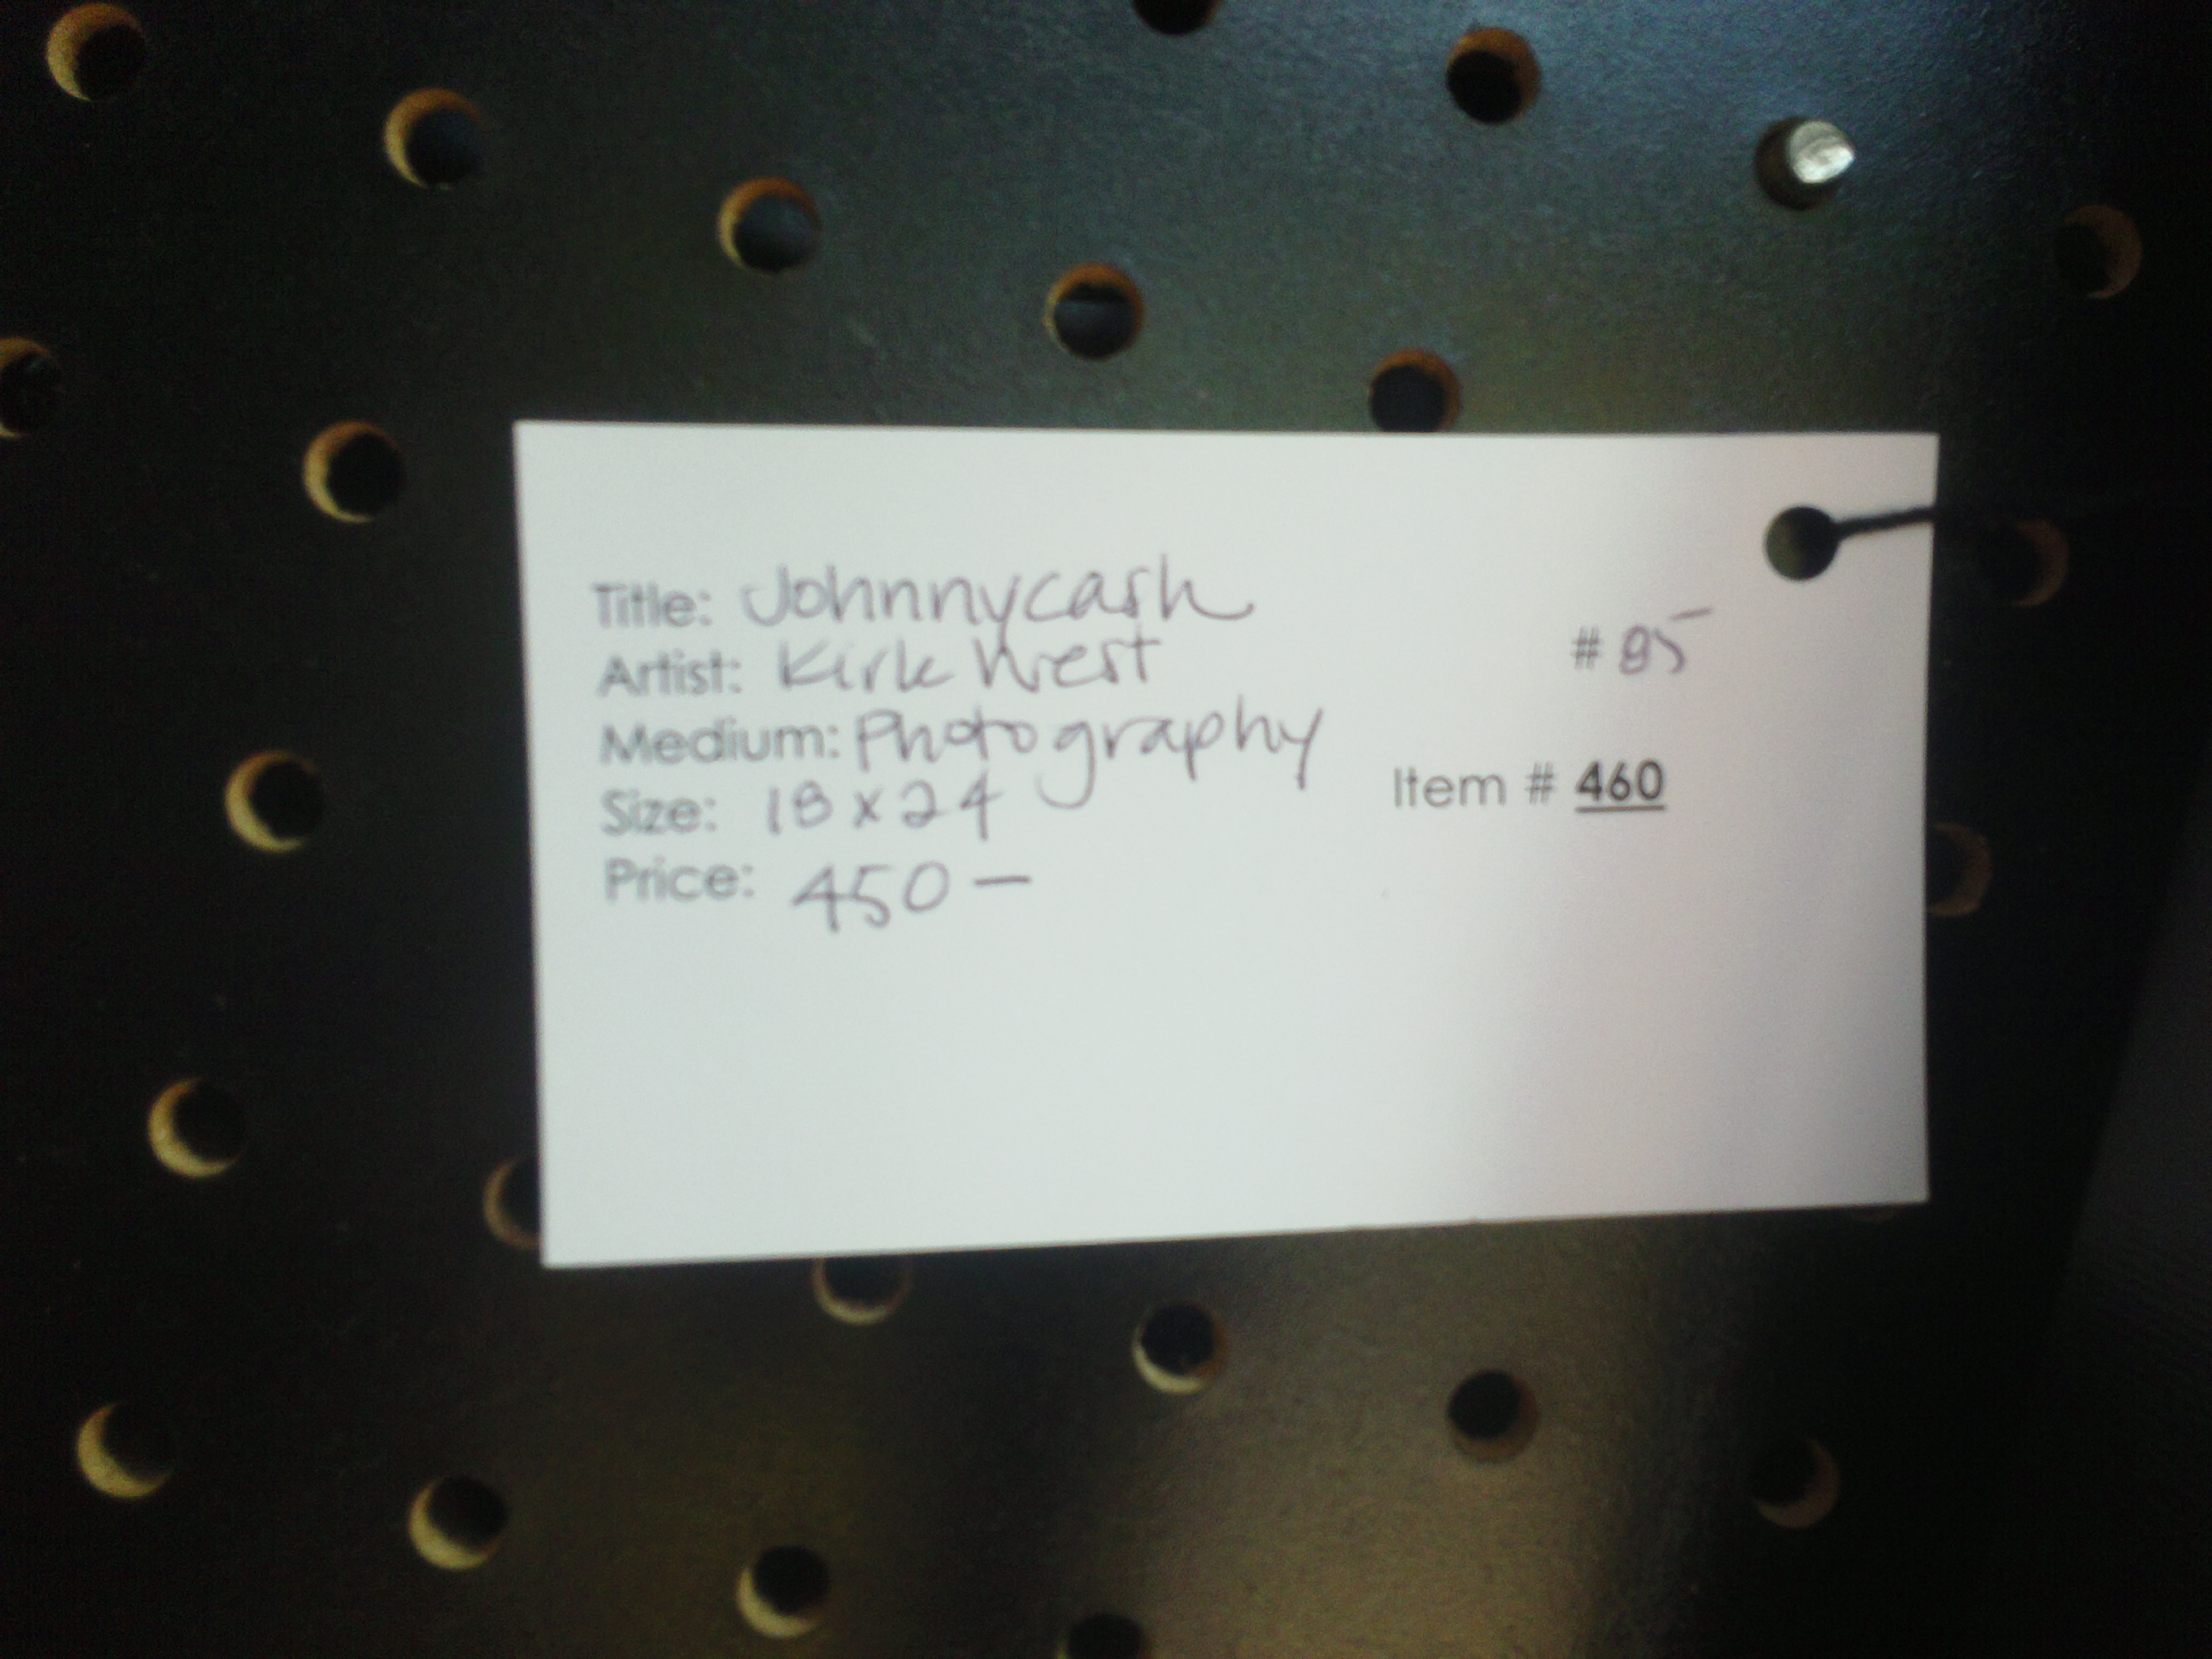 Title: Johnnycash
Artist: Kirk West
# 85
Medium: Photography
Size: 18 x 24
Item # 460
Price: 450 —